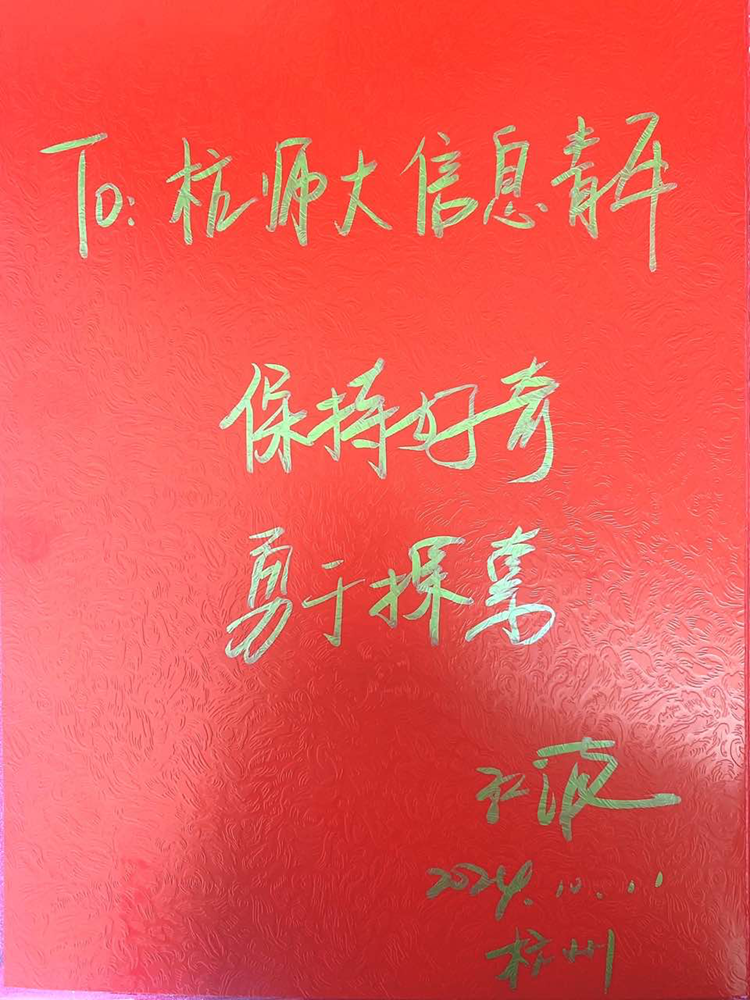 To: 杭师大信息青年
保持好奇
勇于探索
波
2024.10.11
杭州